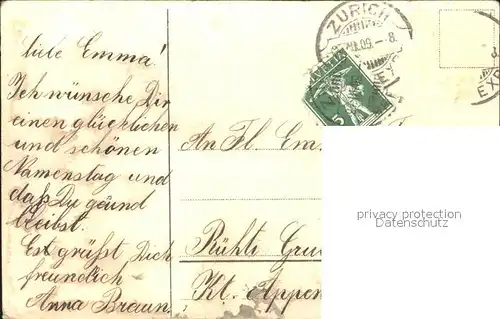 liebe Emma!
Ich wünsche Dir
einen glücklichen
und schönen
Namenstag und
daß Du gsund
bleibst.
Est grüßt Dich
freundlich
Anna Braun.
ZÜRICH
09.-8.
HELVETIA
5
EX
An Fl.
Rühti
Kt. Appen
privacy protection
Datenschutz